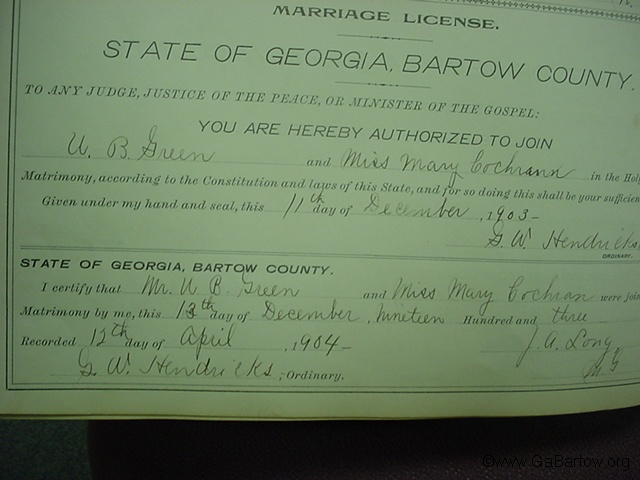 MARRIAGE LICENSE.
STATE OF GEORGIA, BARTOW COUNTY.
TO ANY JUDGE, JUSTICE OF THE PEACE, OR MINISTER OF THE GOSPEL:
YOU ARE HEREBY AUTHORIZED TO JOIN
W. B. Green and Miss Mary Cochrann in the Holy
Matrimony, according to the Constitution and laws of this State, and for so doing this shall be your sufficien
Given under my hand and seal, this 11th day of December, 1903-
G. W. Hendricks
ORDINARY.
STATE OF GEORGIA, BARTOW COUNTY.
I certify that Mr. W B. Green and Miss Mary Cochran were join
Matrimony by me, this 13th day of December, nineteen Hundred and three
Recorded 12th day of April, 1904- J. A. Long
G. W. Hendricks, Ordinary. M. G
©www.GaBartow.org